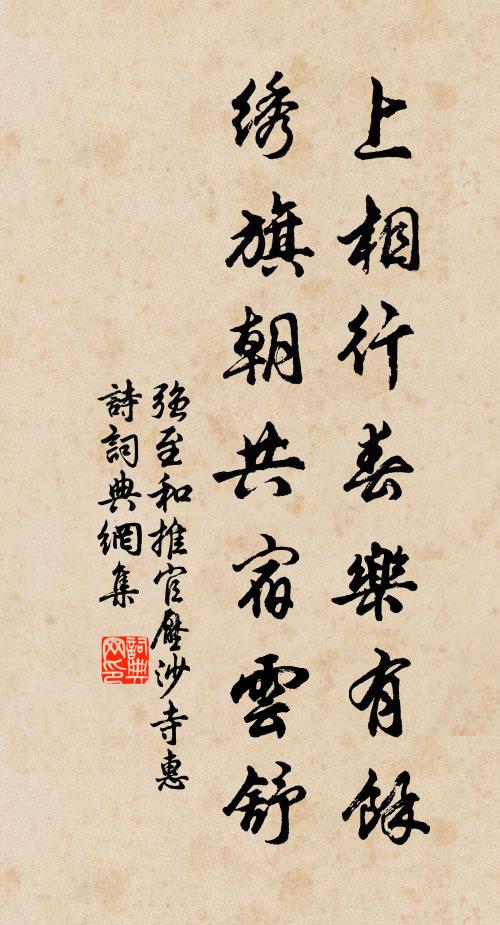 上相行春樂有餘
绣旗朝共宿雲舒
强至和推官壓沙寺惠
詩詞典網集
詞典网印